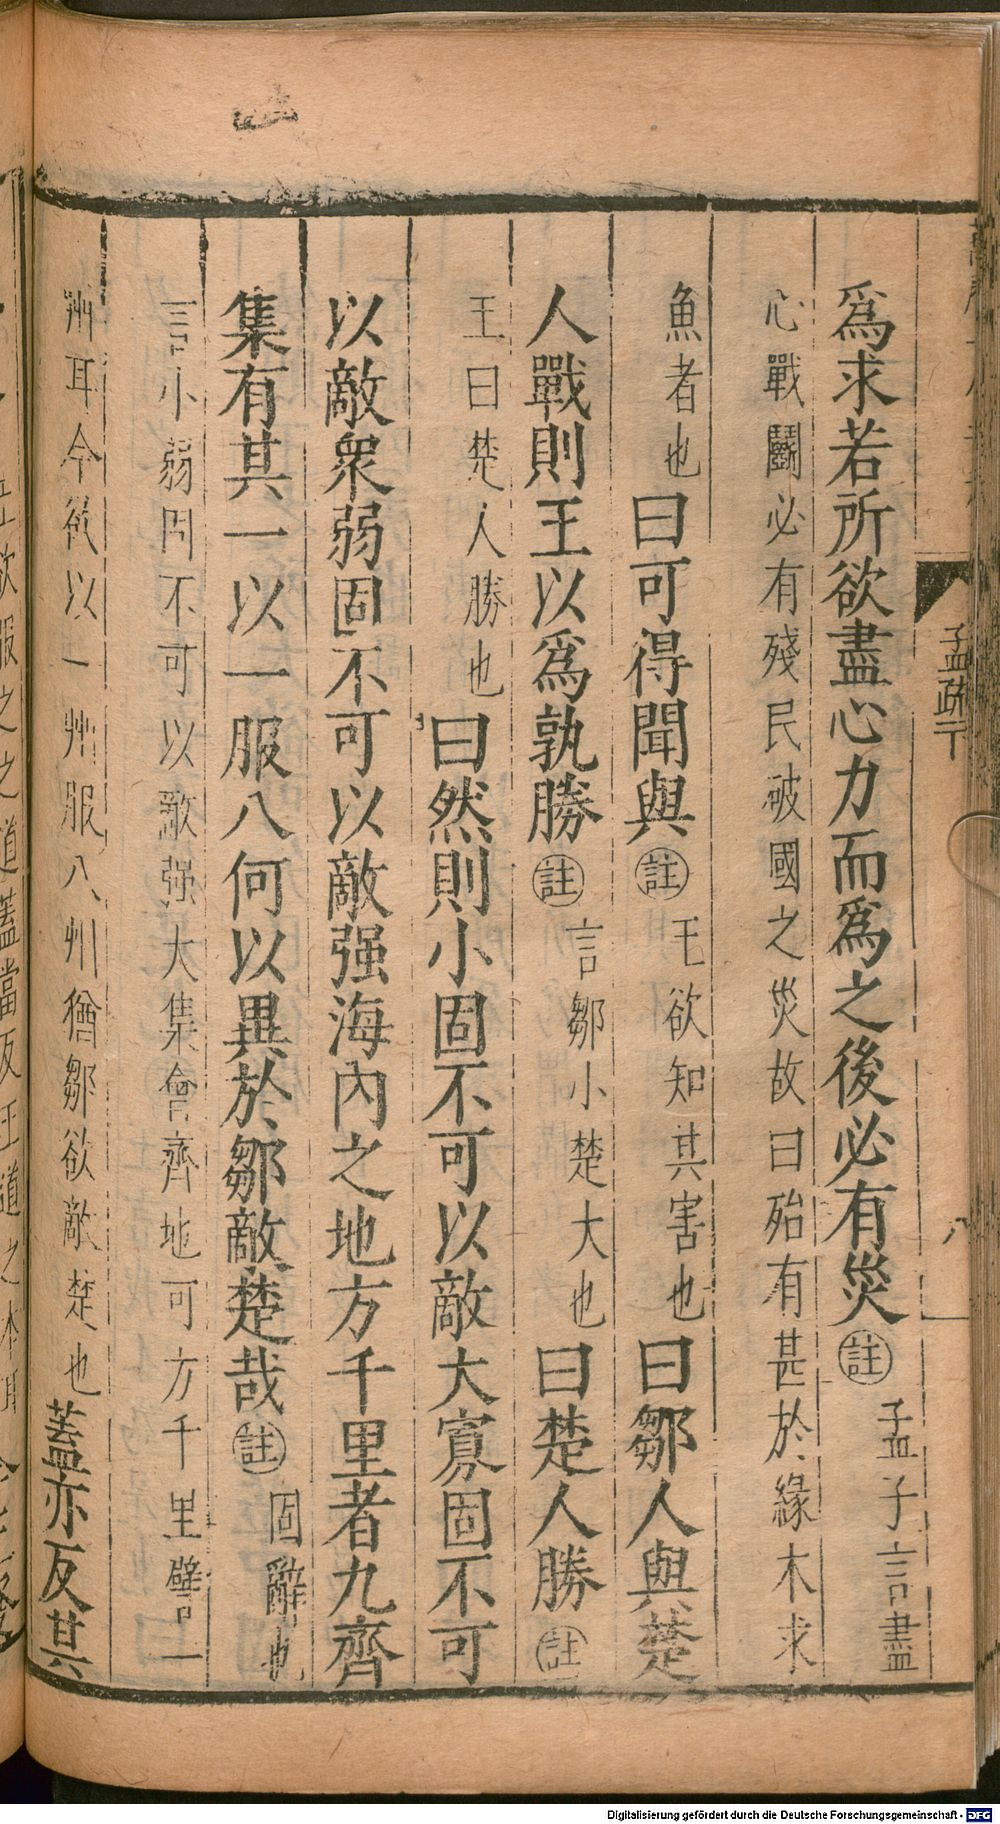 爲求若所欲盡心力而爲之後必有災註孟子言盡
心戰鬭必有殘民破國之災故曰殆有甚於緣木求
魚者也曰可得聞與註王欲知其害也曰鄒人與楚
人戰則王以爲孰勝註言鄒小楚大也曰楚人勝註
王曰楚人勝也曰然則小固不可以敵大寡固不可
以敵衆弱固不可以敵强海內之地方千里者九齊
集有其一以一服八何以異於鄒敵楚哉註固辭也
言小弱固不可以敵强大集會齊地可方千里譬一
州耳今欲以一州服八州猶鄒欲敵楚也蓋亦反其
孟疏下
八
Digitalisierung gefördert durch die Deutsche Forschungsgemeinschaft - DFG